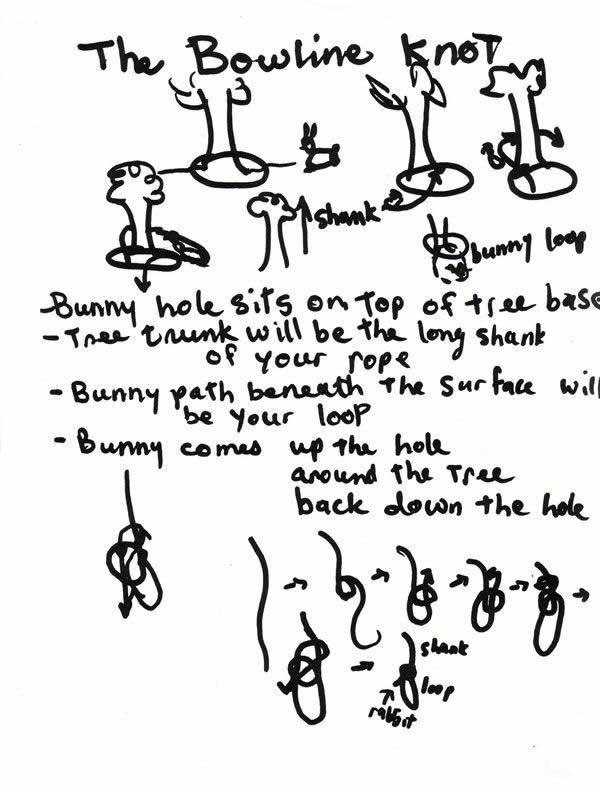 The Bowline Knot
shank
bunny loop
-Bunny hole sits on top of tree base
- Tree trunk will be the long shank
of your rope
- Bunny path beneath the surface will
be your loop
- Bunny comes up the hole
around the tree
back down the hole
shank
loop
rabbit